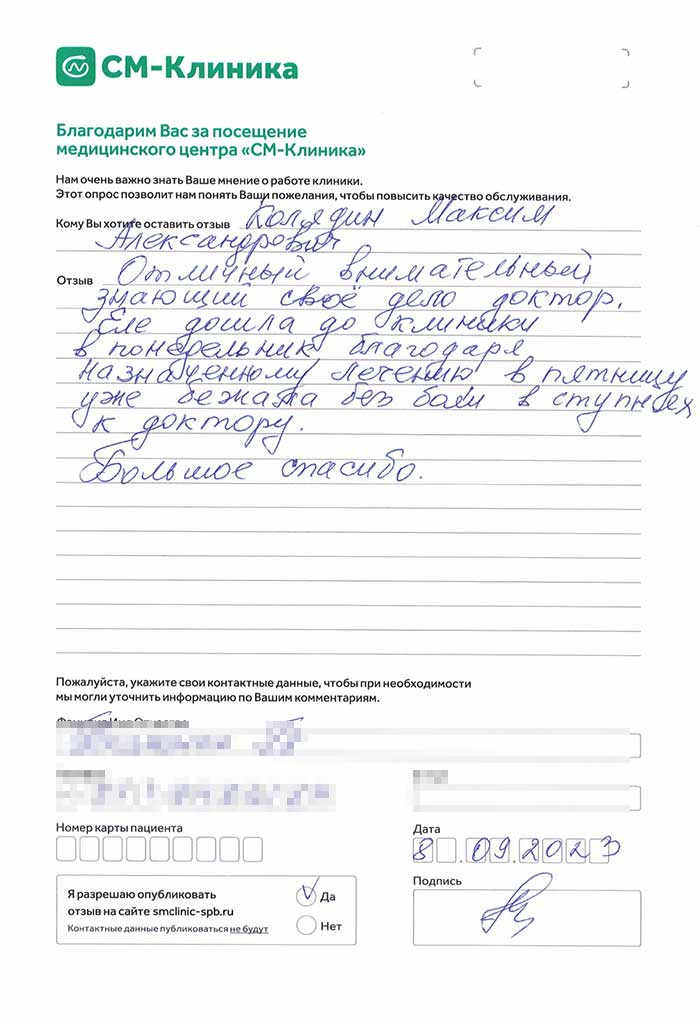 СМ-Клиника
Благодарим Вас за посещение
медицинского центра «СМ-Клиника»
Нам очень важно знать Ваше мнение о работе клиники.
Этот опрос позволит нам понять Ваши пожелания, чтобы повысить качество обслуживания.
Кому Вы хотите оставить отзыв Колядин Максим
Александрович
Отзыв Отличный внимательный
знающий своё дело доктор.
Еле дошла до клиники
в понедельник благодаря
назначенному лечению в пятницу
уже бежала без боли в ступнях
к доктору.
Большое спасибо.
Пожалуйста, укажите свои контактные данные, чтобы при необходимости
мы могли уточнить информацию по Вашим комментариям.
Фамилия Имя Отчество
Номер карты пациента
Дата
8.09.2023
Я разрешаю опубликовать
отзыв на сайте smclinic-spb.ru
Контактные данные публиковаться не будут
Да
Нет
Подпись